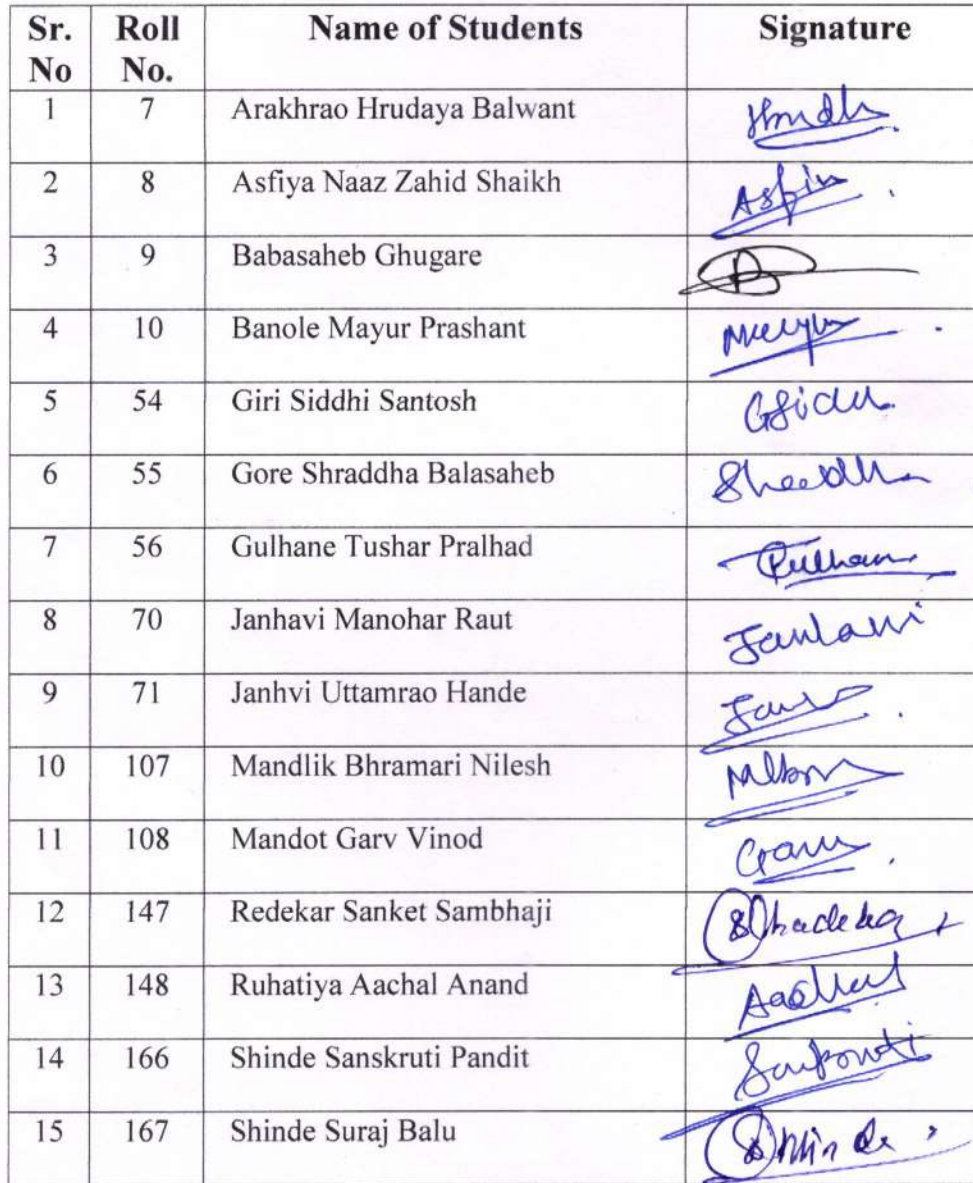 Sr. No Roll No. Name of Students Signature
1 7 Arakhrao Hrudaya Balwant
2 8 Asfiya Naaz Zahid Shaikh
3 9 Babasaheb Ghugare
4 10 Banole Mayur Prashant
5 54 Giri Siddhi Santosh
6 55 Gore Shraddha Balasaheb
7 56 Gulhane Tushar Pralhad
8 70 Janhavi Manohar Raut
9 71 Janhvi Uttamrao Hande
10 107 Mandlik Bhramari Nilesh
11 108 Mandot Garv Vinod
12 147 Redekar Sanket Sambhaji
13 148 Ruhatiya Aachal Anand
14 166 Shinde Sanskruti Pandit
15 167 Shinde Suraj Balu